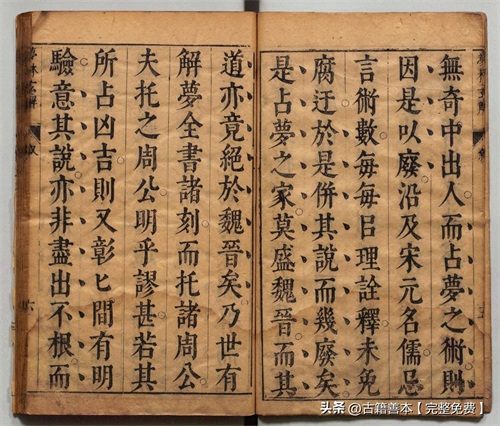 無奇中出人而占夢之術則
因是以廢沿及宋元名儒忌
言術數每每㠯理詮釋未免
腐迂於是併其說而幾廢矣
是占夢之家莫盛魏晉而其
道亦竟絕於魏晉矣乃世有
解夢全書諸刻而托諸周公
夫托之周公明乎謬甚若其
所占凶吉則又彰匕間有明
驗意其說亦非盡出不根而
夢林玄解
六
头条 @古籍善本【完整免费】